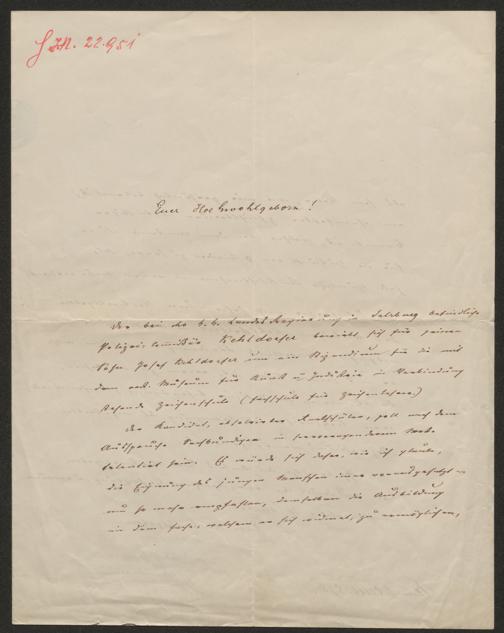 J.N. 22.951
Euer Hochwohlgeboren!
Der bei der k. k. Landesregierung in Salzburg befindliche
Polizei-Commissär Kehldorfer bewirbt sich für seinen
Sohn Josef Kehldorfer um ein Stipendium für die mit
dem öst. Museum für Kunst u Industrie in Verbindung
stehende Zeichenschule (Fachschule für Zeichenlehrer)
Der Kandidat, absolvirter Realschüler, soll nach dem
Ausspruche Sachkundiger in hervorragendem Maße
talentirt sein. Es würde sich daher, wie ich glaube,
die Eignung des jungen Menschen immer vorausgesetzt
um so mehr empfehlen, demselben die Ausbildung
in dem Fache, welchem er sich widmet, zu ermöglichen,